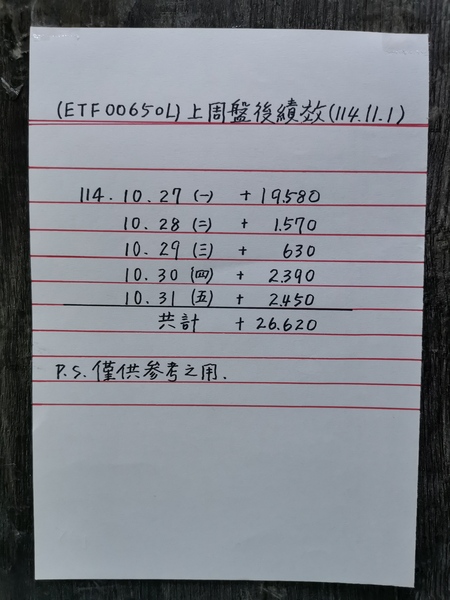 (ETF00650L)上周盤後績效(114.11.1)
114.10.27(一) +19.580
10.28(二) + 1.570
10.29(三) + 630
10.30(四) + 2.390
10.31(五) + 2.450
共計 +26.620
P.S.僅供參考之用.